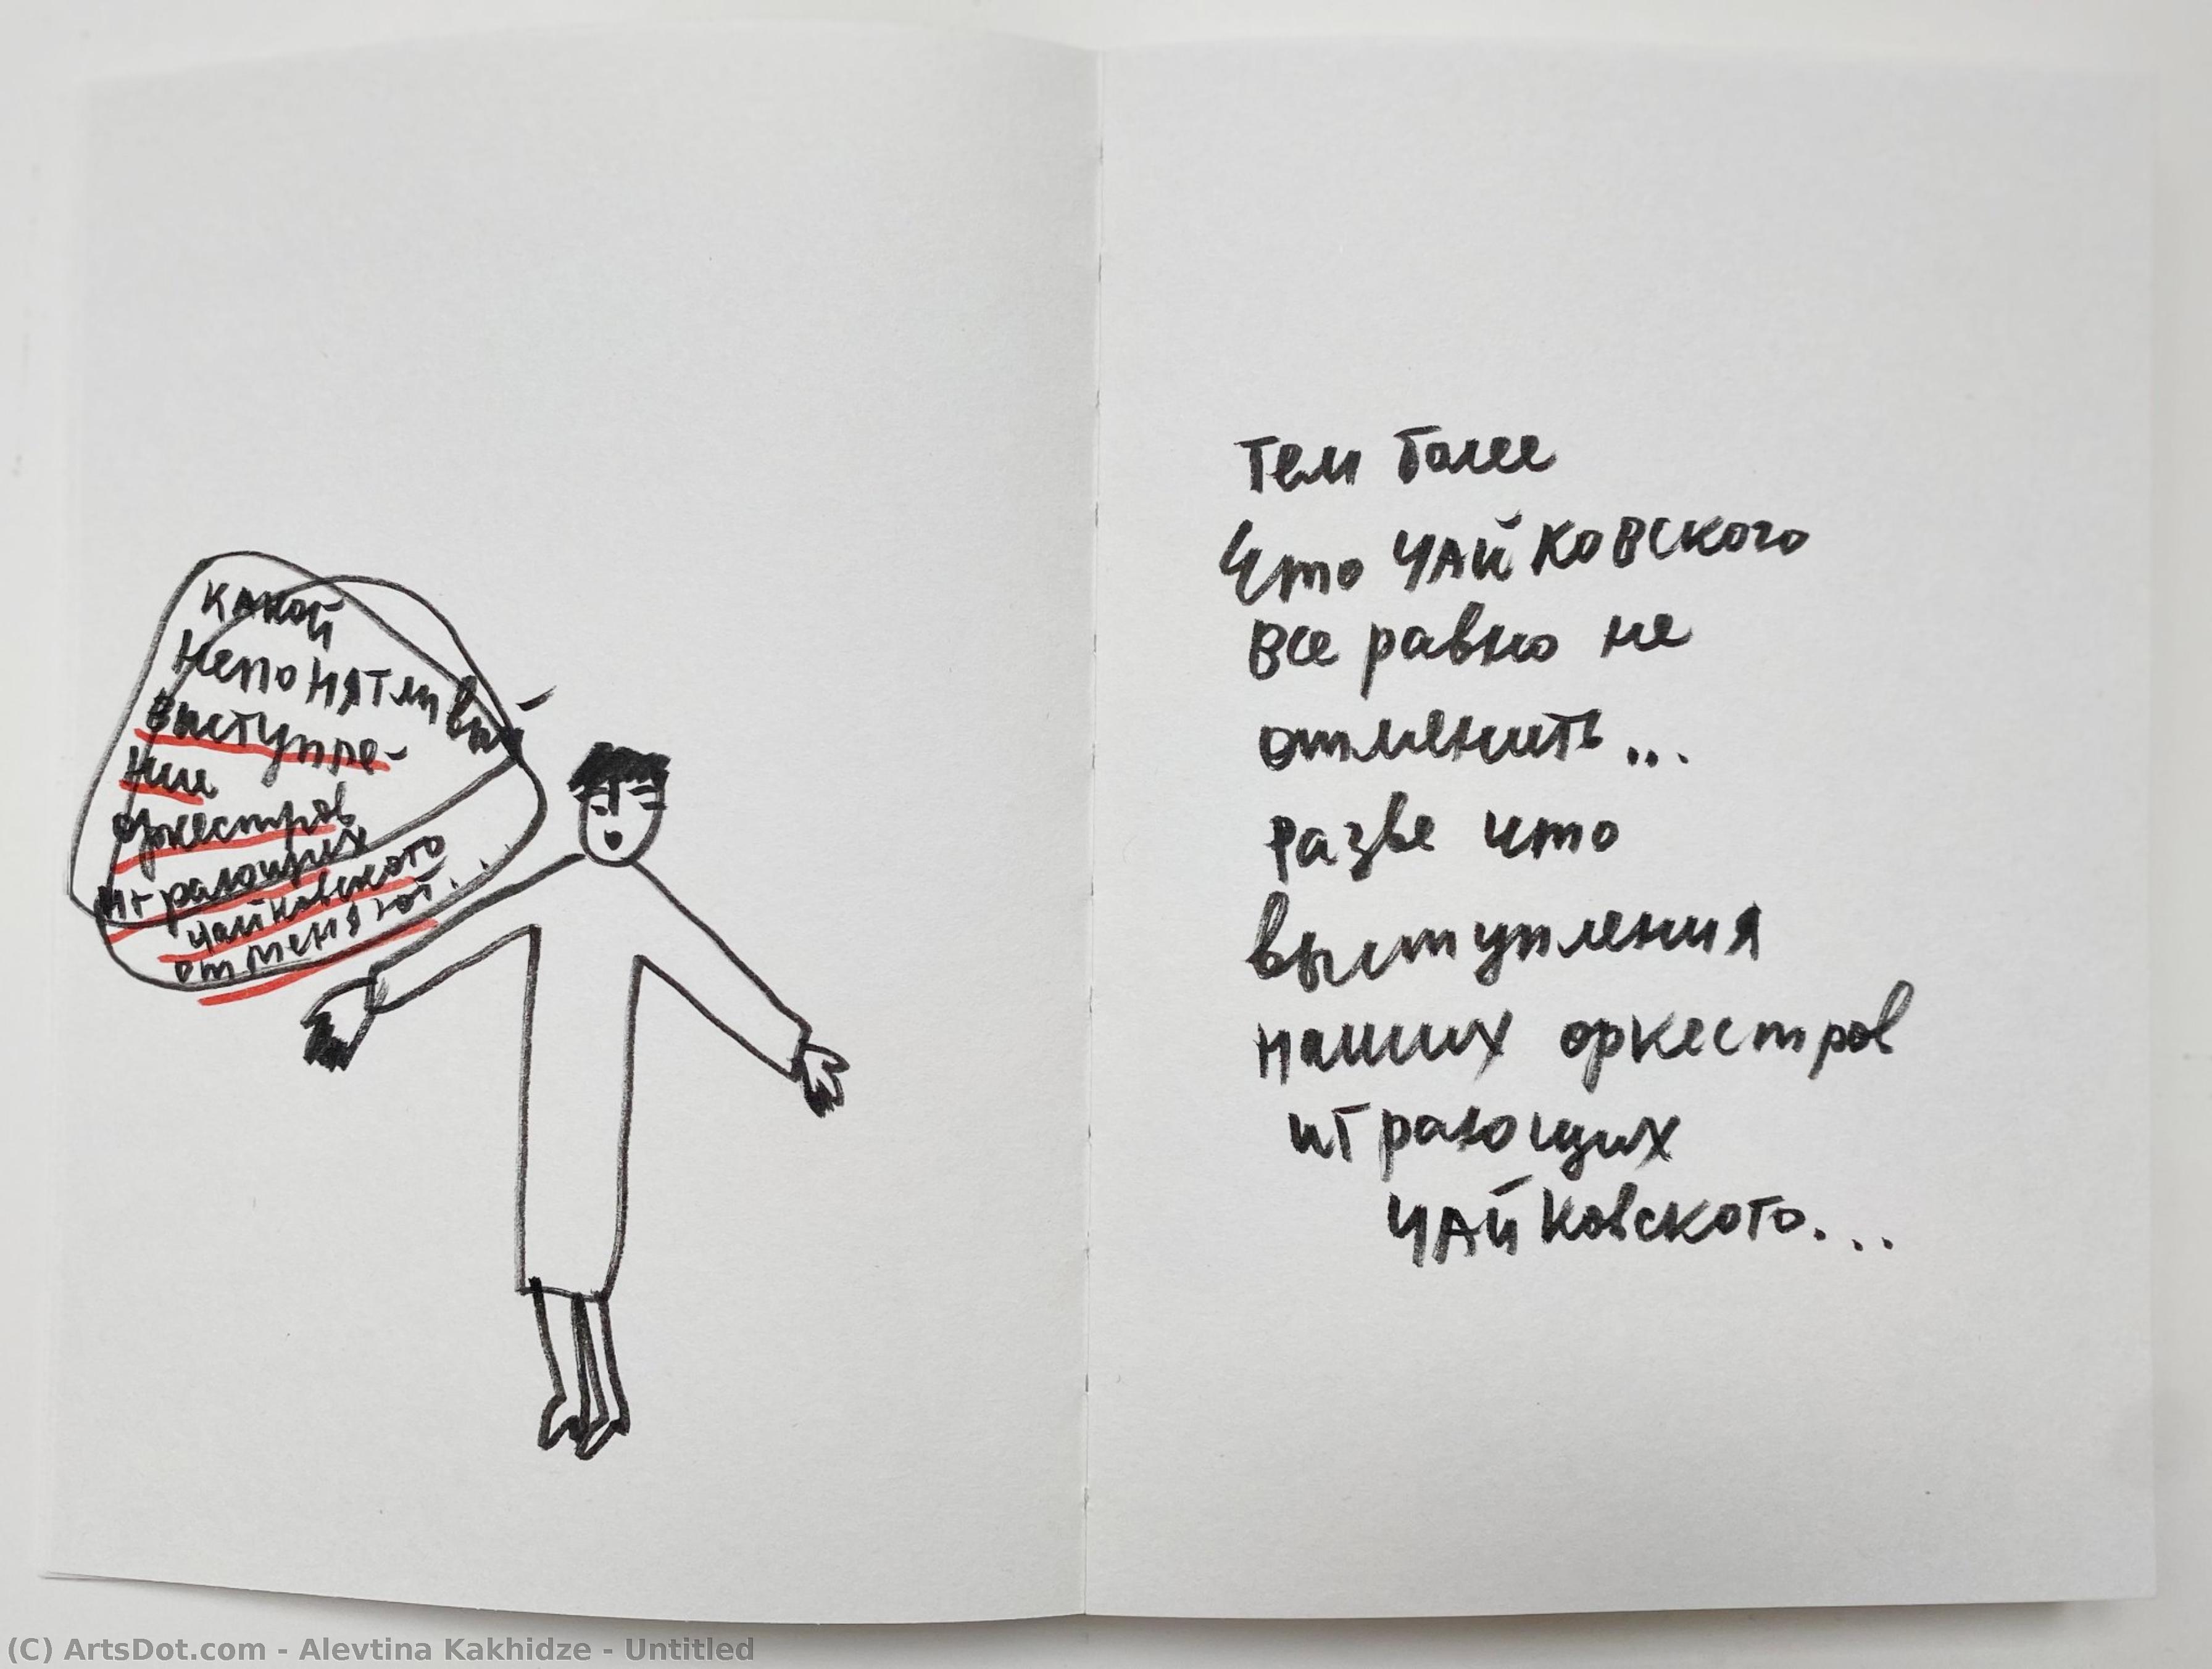 какой
непонятливый
выступле-
нии
оркестров
играющих
Чайковского
отменяют...
тем более
что ЧАЙКОВСКОГО
все равно не
отменить...
разве что
выступления
наших оркестров
играющих
ЧАЙКОВСКОГО...
(C) ArtsDot.com - Alevtina Kakhidze - Untitled